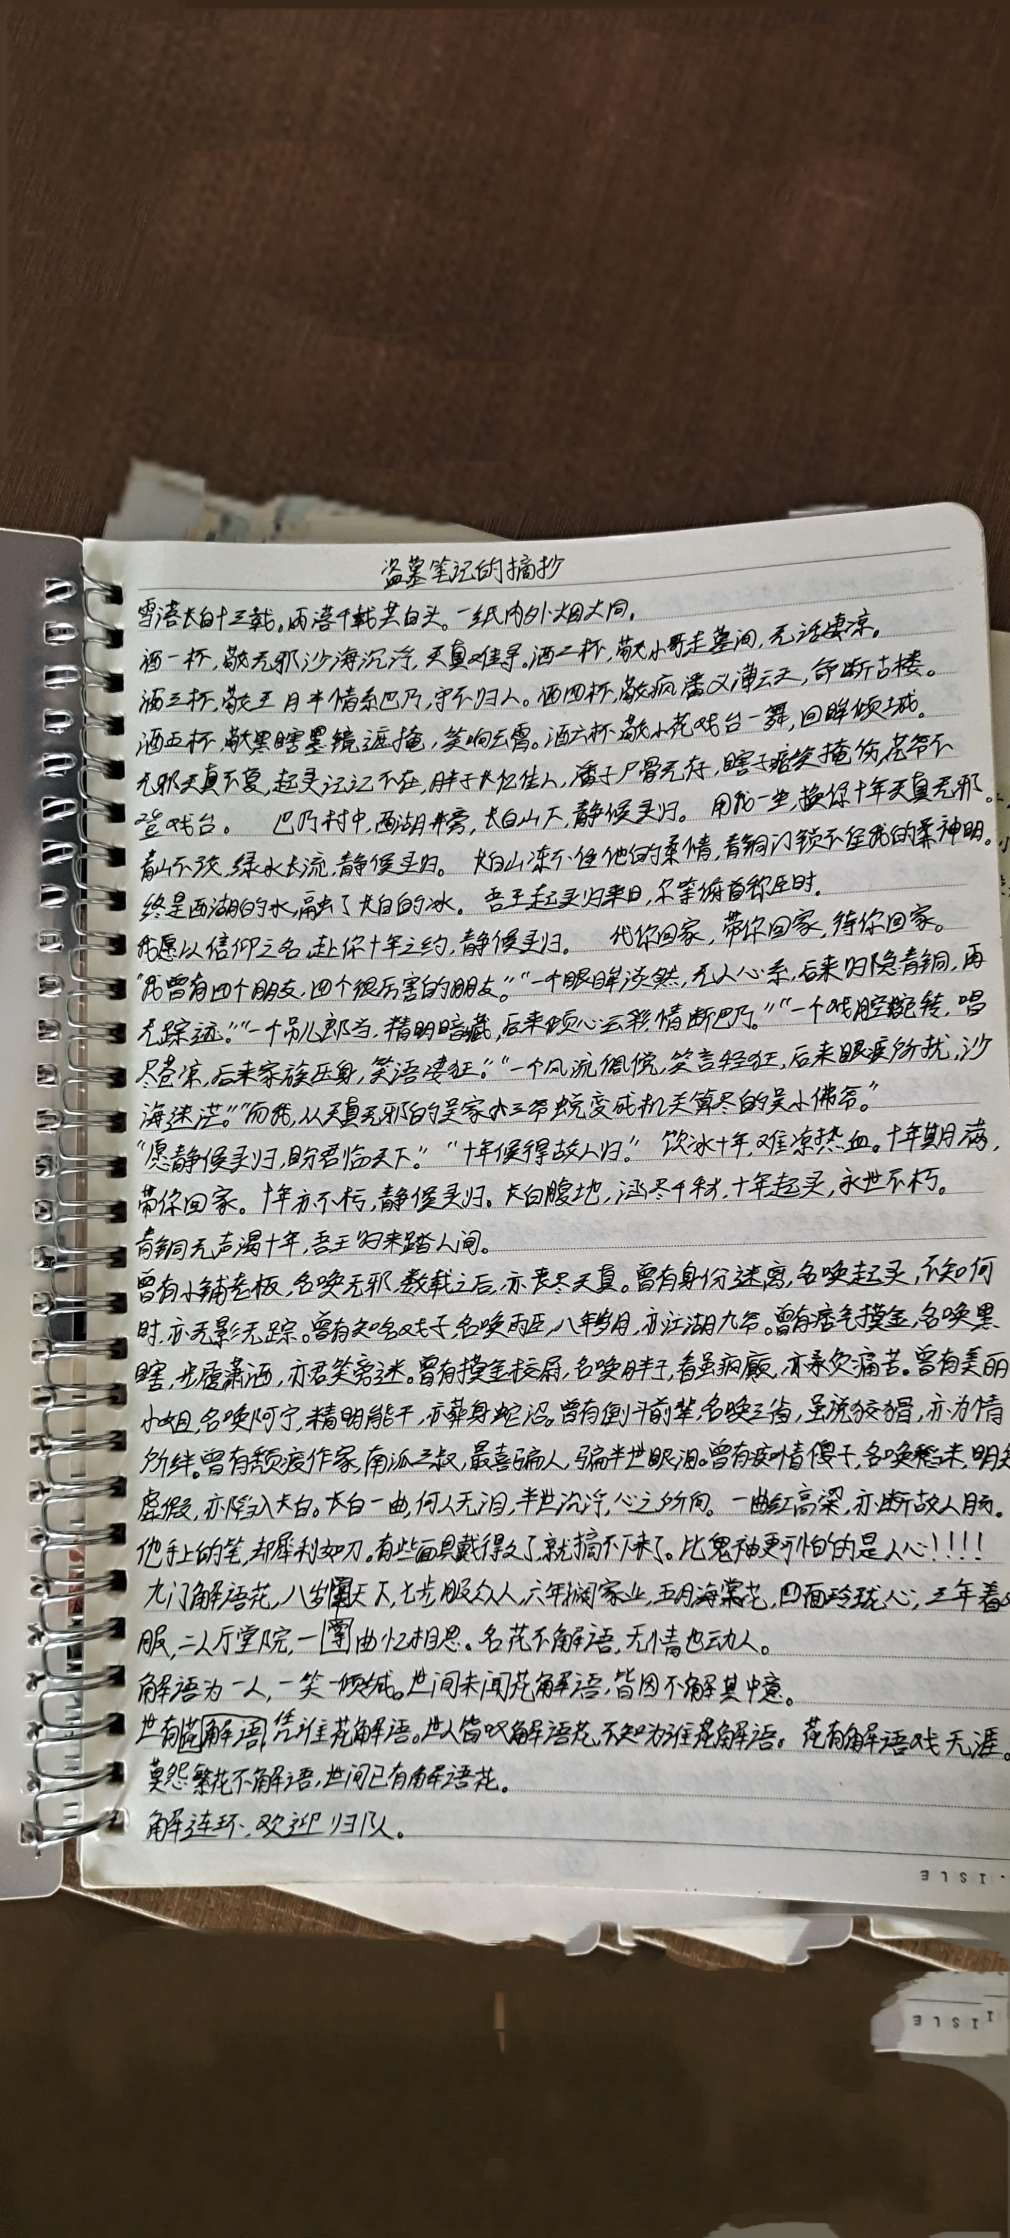 盗墓笔记的摘抄
雪落长白十三载。雨落千载共白头。一纸内外烟火同。
酒一杯,敬无邪沙海沉浮,天真难寻。酒二杯,敬小哥走墓间,无话凄凉。
酒三杯,敬王月半情系巴乃,守不归人。酒四杯,敬疯潘义薄云天,命断古楼。
酒五杯,敬黑瞎墨镜遮掩,笑响云霄。酒六杯,敬小花戏台一舞,回眸倾城。
无邪天真不复,起灵记记不在,胖子长忆佳人,潘子尸骨无存,瞎子痞笑掩伤,花爷不
登戏台。 巴乃村中,西湖井旁,长白山下,静候灵归。 用我一生,换你十年天真无邪。
青山不改,绿水长流,静候灵归。 长白山冻不住他的柔情,青铜门锁不住我的神明。
终是西湖的水,融了长白的冰。 吾王起灵归来日,尔等俯首称臣时。
我愿以信仰之名,赴你十年之约,静候灵归。 代你回家,带你回家,待你回家。
“我曾有四个朋友,四个很厉害的朋友。”“一个眼眸淡然,无人心系,后来归隐青铜,再
无踪迹。”“一个吊儿郎当,精明暗藏,后来倾心云彩,情断巴乃。”“一个戏腔婉转,唱
尽苍凉,后来家族压身,笑语凄狂。”“一个风流倜傥,笑言轻狂,后来眼疾所扰,沙
海迷茫。”“而我,从天真无邪的吴家小三爷蜕变成机关算尽的吴小佛爷。”
“愿静候灵归,盼君临天下。” “十年候得故人归。” 饮冰十年,难凉热血。十年期满,
带你回家。 十年亦不朽,静候灵归。长白腹地,汹尽千秋,十年起灵,永世不朽。
青铜无声渴十年,吾王归来踏人间。
曾有小铺老板,名唤无邪,数载之后,亦丧尽天真。曾有身份迷离,名唤起灵,不知何
时,亦无影无踪。曾有知名戏子,名唤雨臣,八年岁月,亦江湖九爷。曾有痞气摸金,名唤黑
瞎,步履潇洒,亦君笑旁迷。曾有摸金校尉,名唤胖子,看虽疯癫,亦承负痛苦。曾有美丽
小姐,名唤阿宁,精明能干,亦葬身蛇沼。曾有倒斗前辈,名唤三省,虽说狡猾,亦为情
所绊。曾有颓废作家,南派三叔,最喜骗人,骗半世眼泪。曾有痴情傻子,名唤稻米,明知
虚假,亦陷入长白。长白一曲,何人无泪,半世沉浮,心之所向。 一曲红高粱,亦断故人肠。
他手上的笔,却犀利如刀。有些面具戴得久了,就摘不下来了。比鬼神更可怕的是人心!!!!
九门解语花,八岁闯天下,七步服众人,六年撊家业,五月海棠花,四面玲珑心,三年着
服,二人厅堂院,一闋曲忆相思。名花不解语,无情也动人。
解语为一人,一笑一倾城。世间未闻花解语,皆因不解其中意。
世有花解语,凭谁花解语。世人皆叹解语花,不知为谁是解语。 花有解语戏无涯。
莫怨繁花不解语,世间已有解语花。
解连环,欢迎归队。
ISLE
IISLE